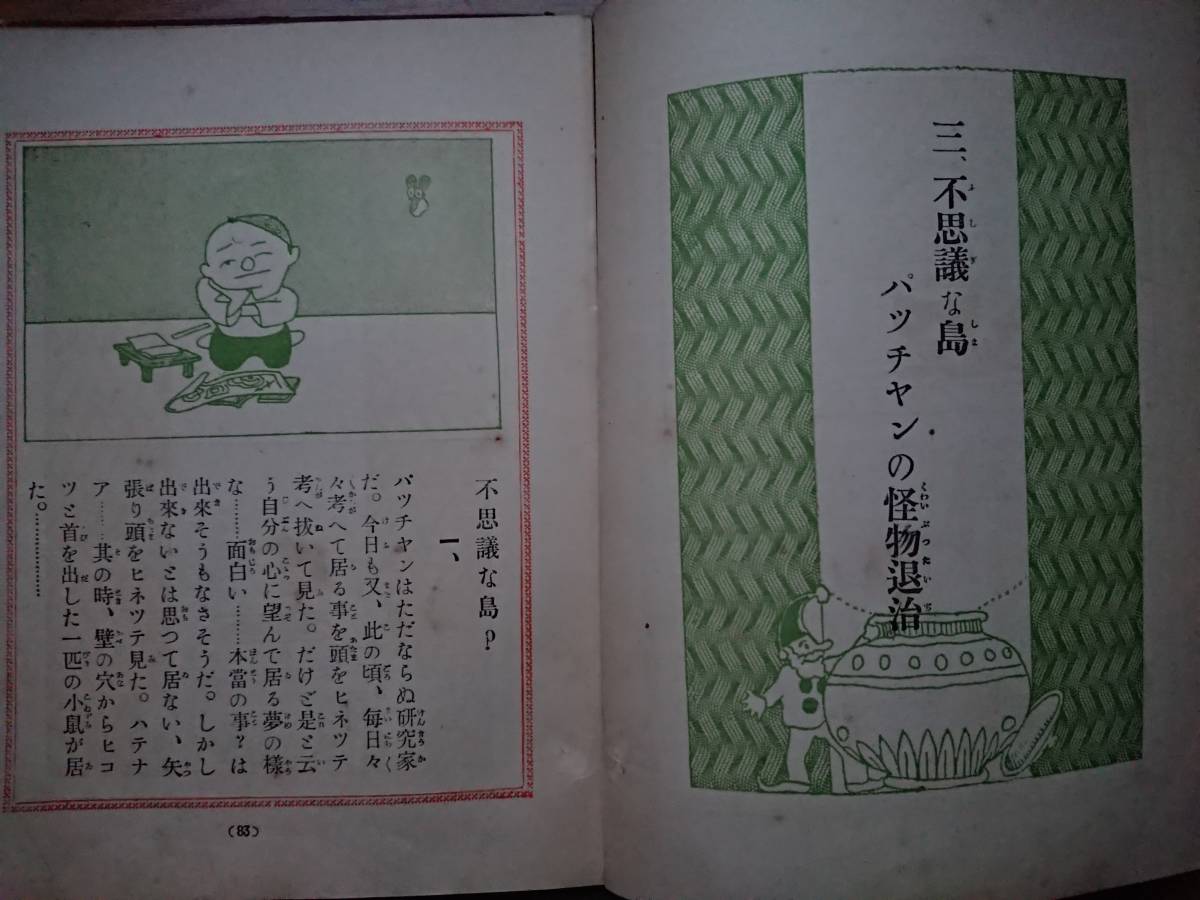 三、不思議な島
パツチヤンの怪物退治
不思議な島？
一、
パツチヤンはただならぬ研究家
だ。今日も又、此の頃、毎日々
々考へて居る事を頭をヒネツテ
考へ拔いて見た。だけど是と云
う自分の心に望んで居る夢の樣
な………面白い………本當の事？は
出來そうもなさそうだ。しかし
出來ないとは思つて居ない、矢
張り頭をヒネツテ見た。ハテナ
ア……其の時、壁の穴からヒコ
ツと首を出した一匹の小鼠が居
た。………………
(83)